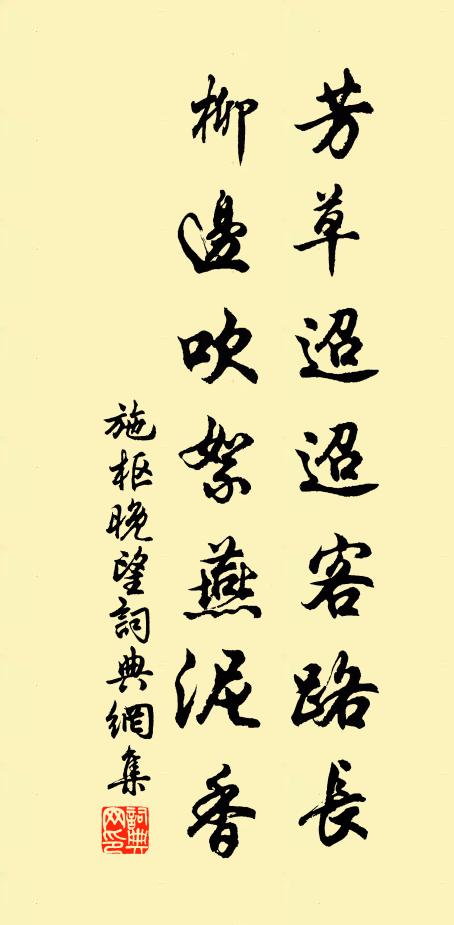 芳草迢迢客路長
柳邊吹絮燕泥香
施枢晚望詞典網集
詞典網印